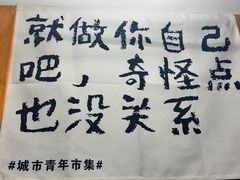 就做你自己
吧，奇怪点
也没关系
#城市青年市集#